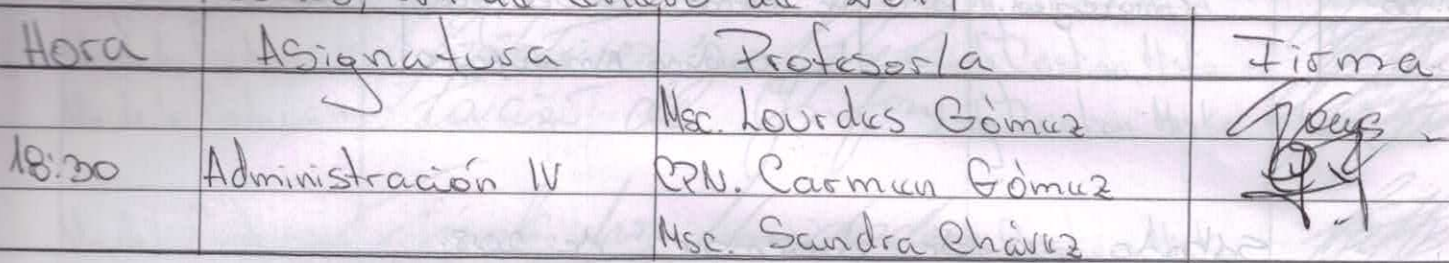 Hora Asignatura Profesor/a Firma
Msc. Lourdes Gómez
18:30 Administración IV CPN. Carmen Gómez
Msc. Sandra Chávez